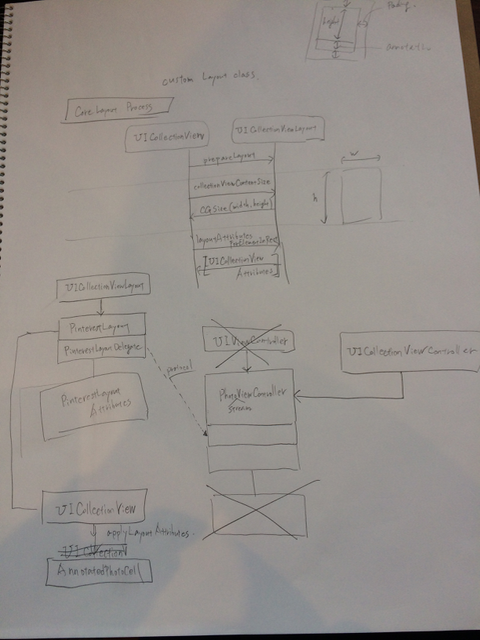 custom Layout class.
Core Layout Process
UICollectionView
UICollectionViewLayout
prepareLayout
collectionViewContentSize
CGSize(width, height)
w
h
layoutAttributes
ForElementsInRect
[UICollectionView
Attributes]
UICollectionViewLayout
PinterestLayout
PinterestLayoutDelegate
protocol
PinterestLayout
Attributes
UIViewController
UICollectionViewController
PhotoViewController
Stream
UICollectionView
applyLayoutAttributes.
UICollectionV
AnnotatedPhotoCell